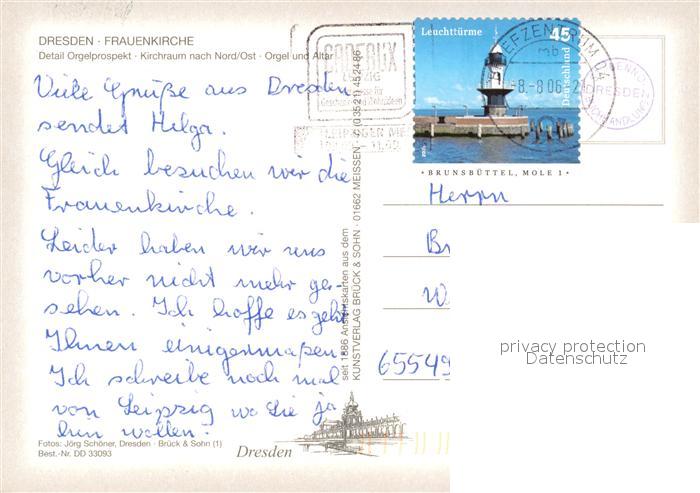 DRESDEN · FRAUENKIRCHE
Detail Orgelprospekt · Kirchraum nach Nord/Ost · Orgel und Altar
Viele Grüße aus Dresden
sendet Helga.
Gleich besuchen wir die
Frauenkirche.
Leider haben wir uns
vorher nicht mehr ge-
sehen. Ich hoffe es geht
Ihnen einigermaßen.
Ich schreibe noch mal
von Leipzig wo Sie ja
hin wollen.
Fotos: Jörg Schöner, Dresden · Brück & Sohn (1)
Best.-Nr. DD 33093
Dresden
seit 1886 Ansichtskarten aus dem
KUNSTVERLAG BRÜCK & SOHN · 01662 MEISSEN · (03521) 452486
LEIPZIG
BRIEFZENTRUM 04
mb
-8.-8.06-2
DRESDEN
Leuchttürme
45
Deutschland
· BRUNSBÜTTEL, MOLE 1 ·
Herrn
65549
privacy protection
Datenschutz